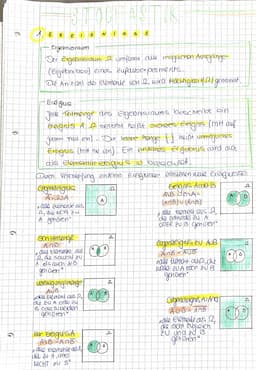 STOCHASTIK
1 EREIGNISSE
Ergebnisraum
Der Ergebnisraum Ω umfasst alle möglichen Ausgänge
(Ergebnisse) eines Zufallsexperiments.
Die Anzahl der Elemente von Ω wird Mächtigkeit |Ω| genannt.
Ereignis
Jede Teilmenge des Ergebnisraums beschreibt ein
Ereignis A. Ω selbst heißt sicheres Ereignis (tritt auf
jeden Fall ein). Die leere Menge { } heißt unmögliches
Ereignis (tritt nie ein). Ein einzelnes Ergebnis wird auch
als Elementarereignis bezeichnet.
Durch Verknüpfung einzelner Ereignisse entstehen neue Ereignisse:
Gegenereignis
"alle Elemente aus
Ω, die nicht zu
A gehören"
Schnittmenge
A∩B
"alle Elemente aus
Ω, die sowohl zu
A als auch zu B
gehören"
Vereinigungsmenge
A∪B
"alle Elemente aus Ω,
die zu A oder zu
B oder zu beiden
gehören"
nur Ereignis A
"alle Elemente aus
Ω, die zu A und
nicht zu B"
Ereignis A oder B
"alle Elemente aus Ω,
die entweder zu A
oder zu B gehören"
Gegenereignis zu A∪B
"alle Elemente aus Ω, die
weder zu A noch zu B
gehören"
Gegenereignis zu A∩B
"alle Elemente aus Ω,
die nicht zugleich
zu A und zu B
gehören"